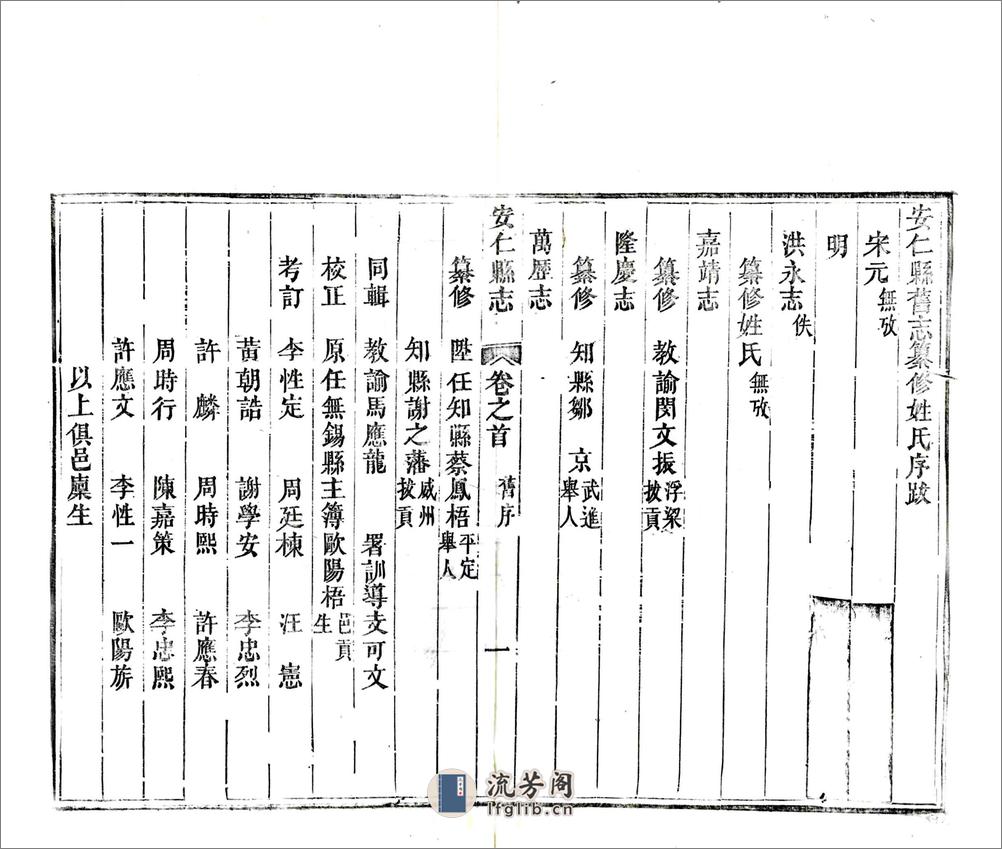 安仁縣舊志纂修姓氏序跋
宋元無攷
明
洪永志佚
纂修姓氏無攷
嘉靖志
纂修 教諭閔文振浮梁拔貢
隆慶志
纂修 知縣鄒 京武進舉人
萬歷志
安仁縣志 卷之首 舊序 一
纂修 陞任知縣蔡鳳梧平定舉人
知縣謝之藩威州拔貢
同輯 教諭馬應龍 署訓導支可文
校正 原任無錫縣主簿歐陽梧邑貢生
考訂 李性定 周廷棟 汪 憲
黃朝誥 謝學安 李忠烈
許 麟 周時熙 許應春
周時行 陳嘉策 李忠熙
許應文 李性一 歐陽旂
以上俱邑廩生
流芳阁
lfglib.cn